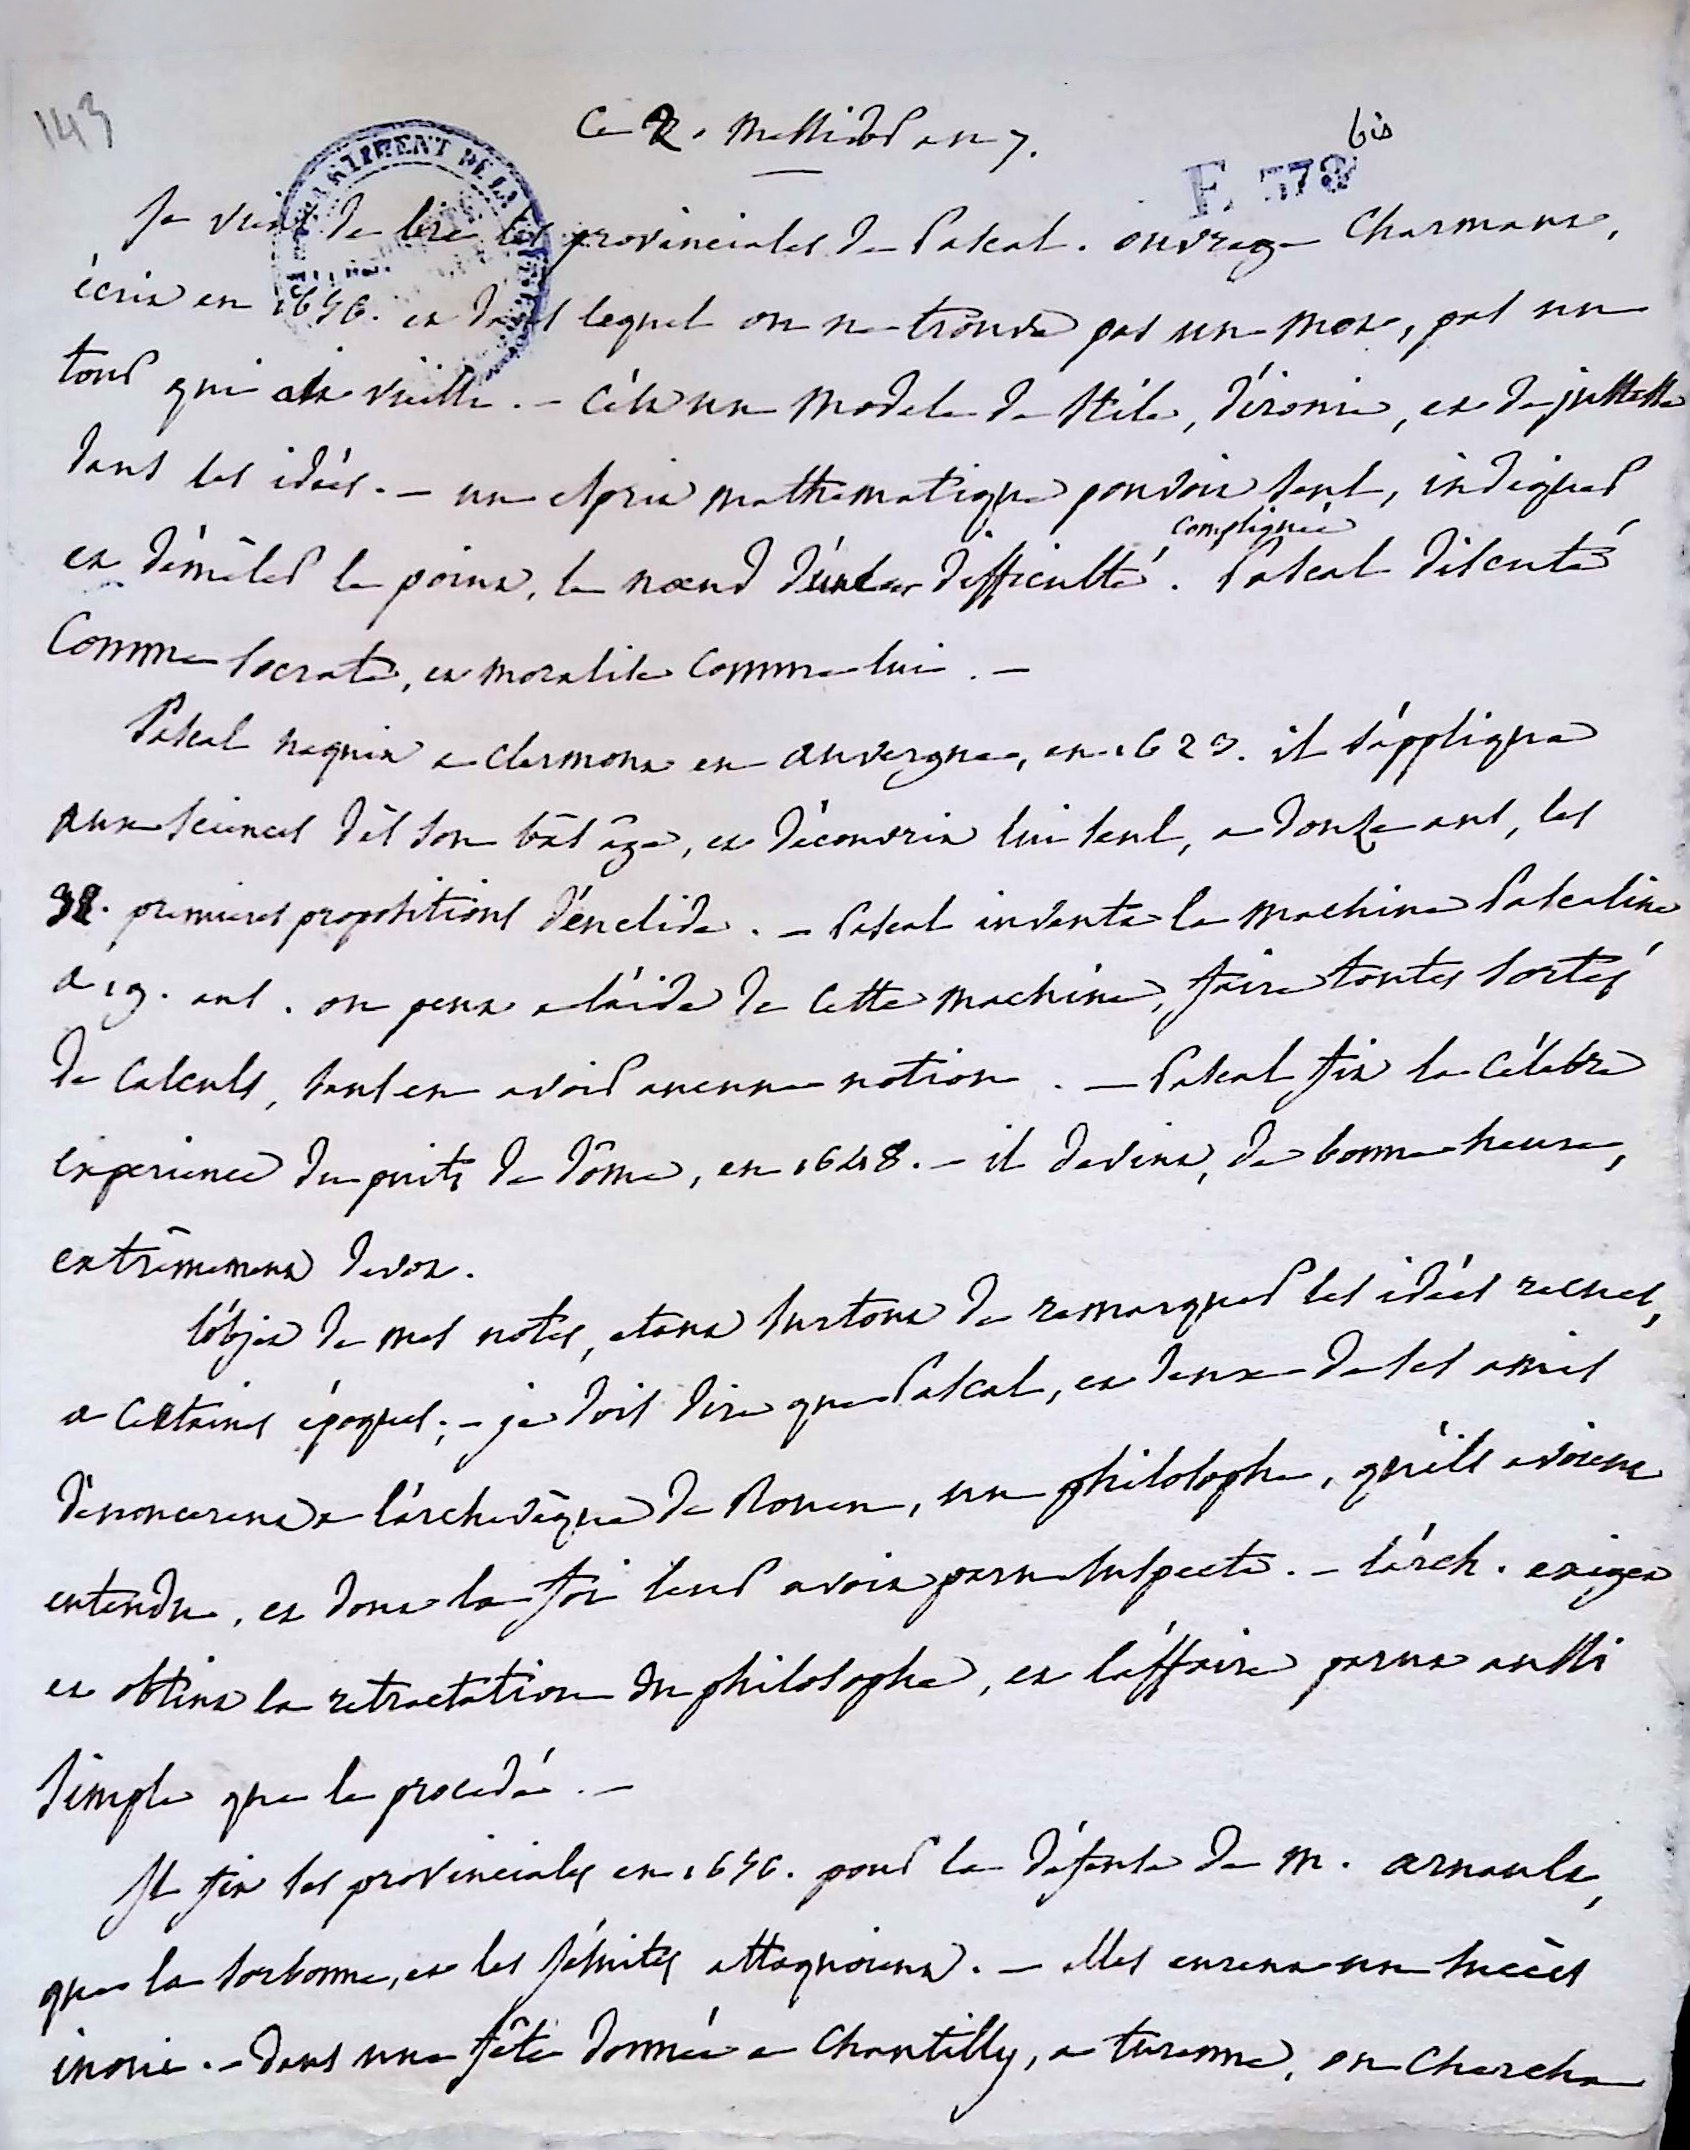 143
Ce 2. Messidor an 7.
bis
F 578
DEPARTEMENT DE LA
Je viens de lire les provinciales de Pascal. ouvrage charmant,
écrit en 1656. et dans lequel on ne trouve pas un mot, pas un
tour qui ait vieilli. - C'est un modele de stile, d'ironie, et de justesse
dans les idées. - un esprit mathematique pouvoit seul, indiquer
et démêler le point, le nœud d'une difficulté compliquée. Pascal discute
Comme Socrate, et moralise comme lui. -
Pascal naquit a clermont en auvergne, en 1623. il s'appliqua
aux sciences dès son bas âge, et découvrit lui seul, a douze ans, les
32. premieres propositions d'euclide. - Pascal inventa la machine Pascaline
a 19. ans. on peut a l'aide de cette machine, faire toutes sortes
de calculs, sans en avoir aucune notion. - Pascal fit la célebre
experience du puits de Dôme, en 1648. - il devint, de bonne heure,
extrêmement devot.
l'objet de mes notes, etant surtout de remarquer les idées recues,
a certaines époques; - je dois dire que Pascal, et deux de ses amis
dénoncerent a l'archevêque de Rouen, un philosophe, qu'ils avoient
entendu, et dont la foi leur avoit paru suspecte. - l'arch. exigea
et obtint la retractation du philosophe, et l'affaire parut aussi
simple que le procedé. -
Il fit les provinciales en 1656. pour la défense de M. arnault,
que la sorbonne, et les Jésuites attaquoient. - elles eurent un succès
inoui. - dans une fête donnée a Chantilly, a turenne, on chercha